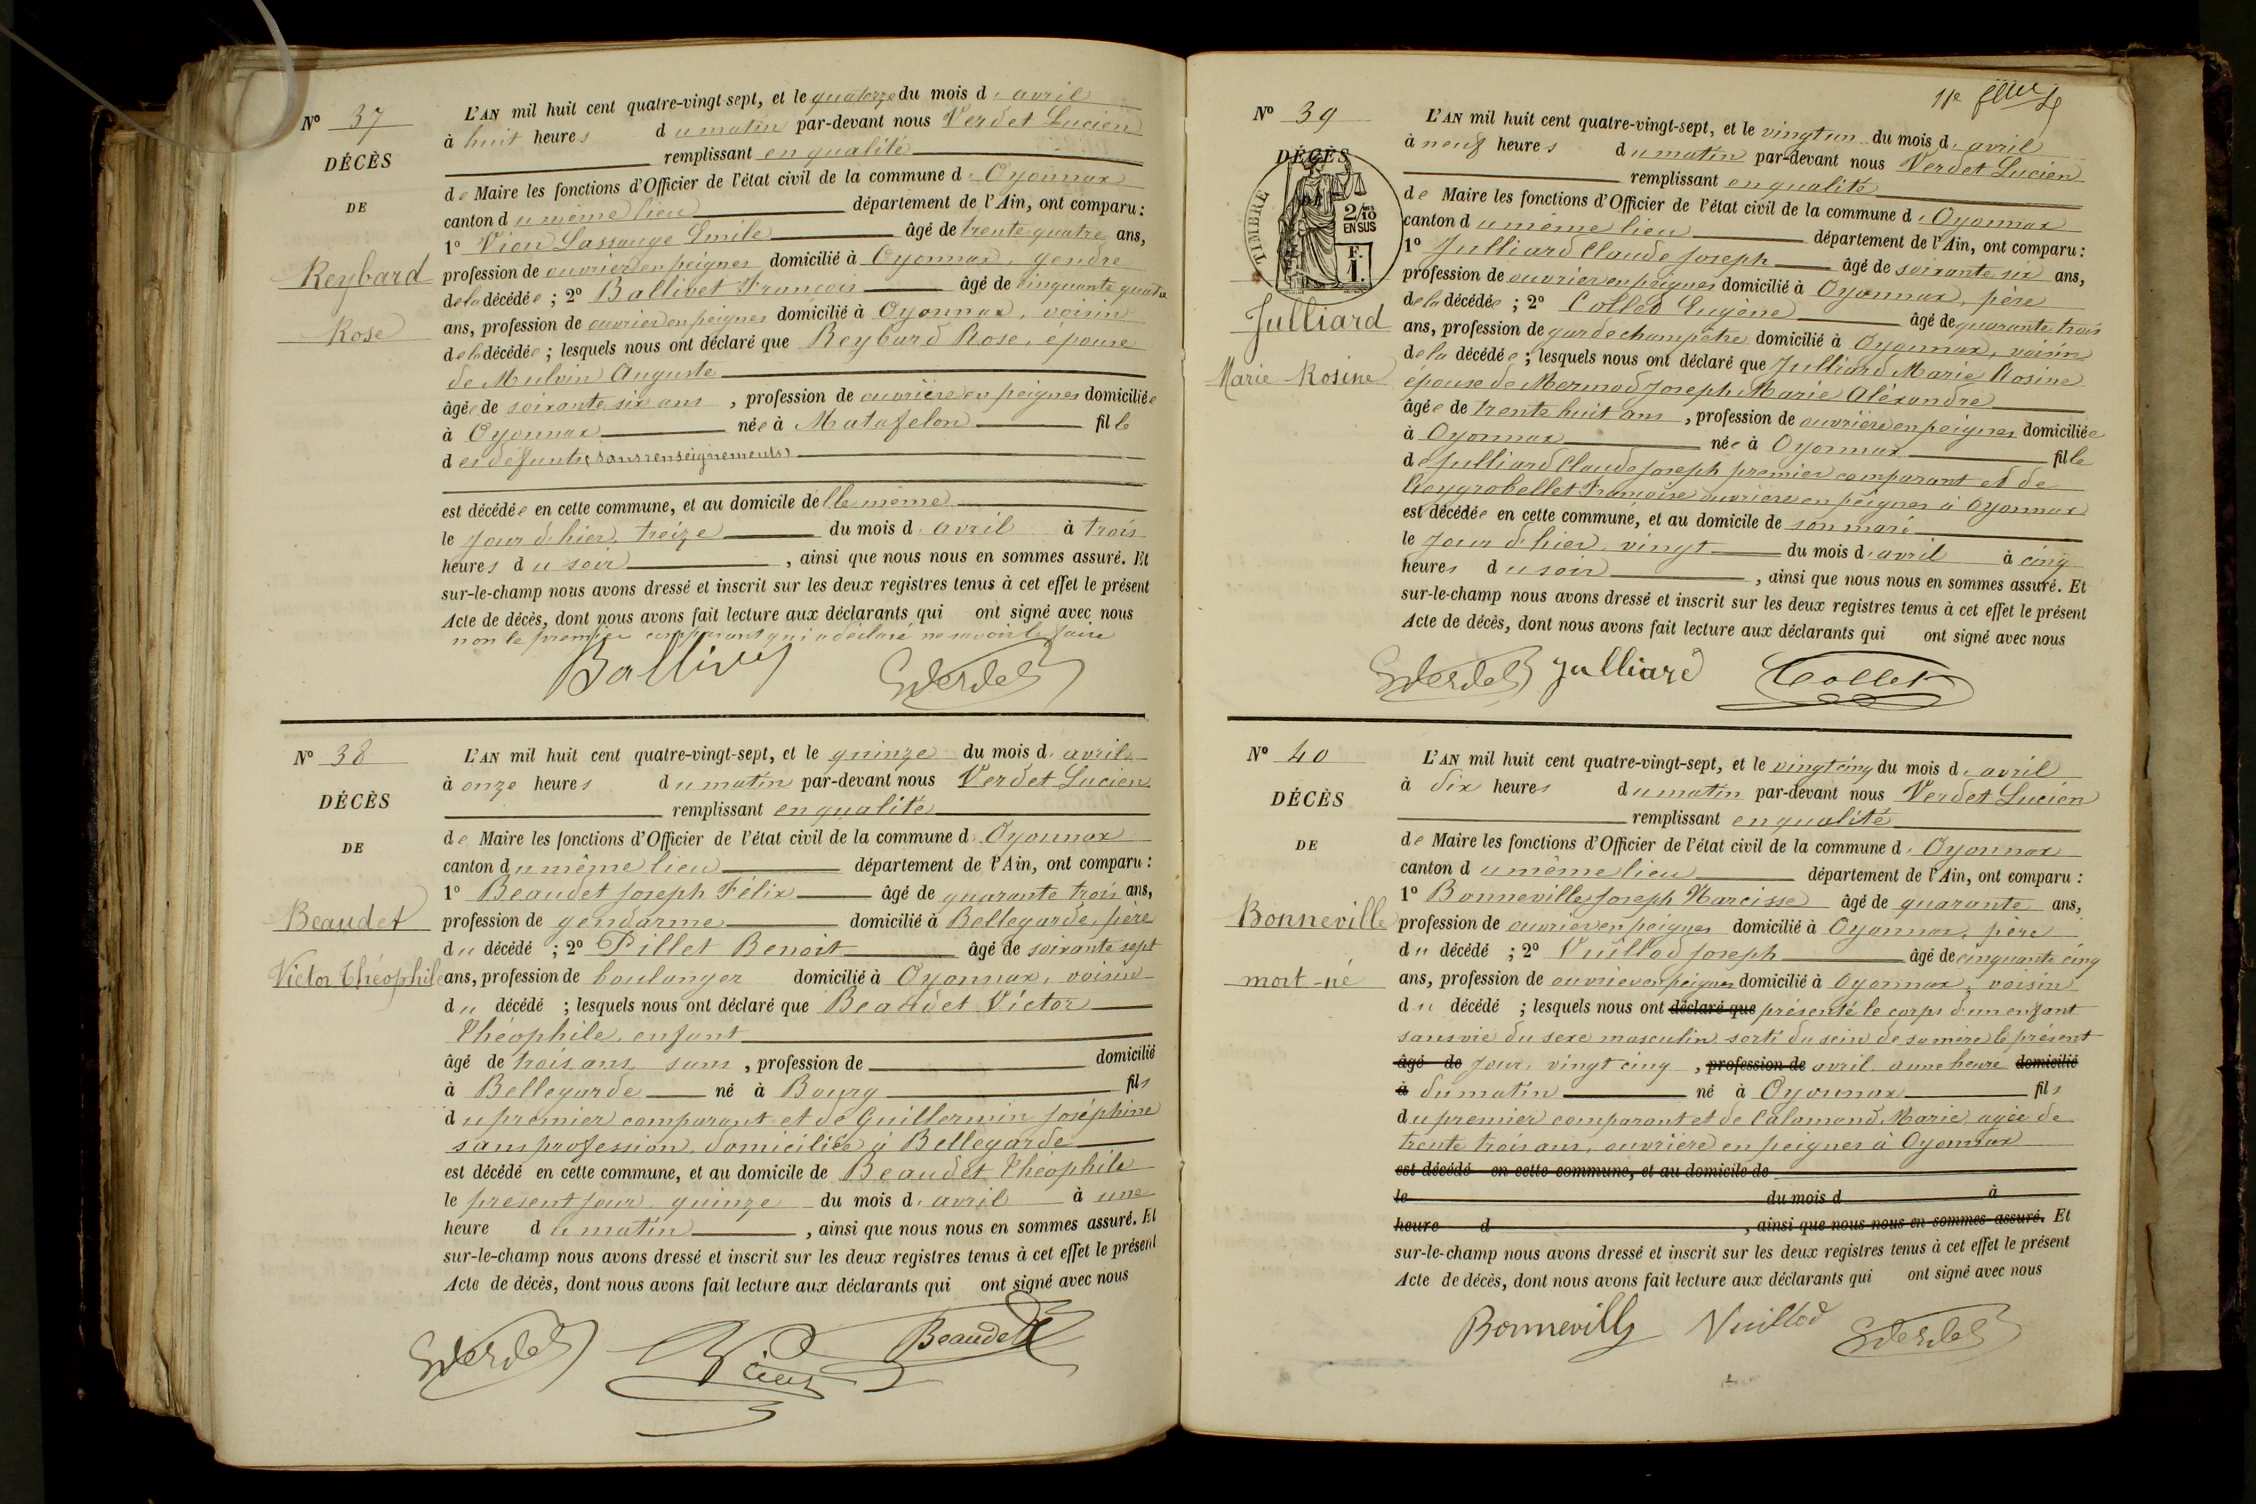 N° 37
DÉCÈS
DE
Reybard
Rose
L'AN mil huit cent quatre-vingt sept, et le quatorze du mois d'avril
à huit heures du matin par-devant nous Verdet Lucien
remplissant en qualité
de Maire les fonctions d'Officier de l'état civil de la commune d'Oyonnax
canton du même lieu département de l'Ain, ont comparu :
1° Vion Lassauge Emile âgé de trente quatre ans,
profession de ouvrier en peignes domicilié à Oyonnax, gendre
de la décédée ; 2° Ballivet François âgé de cinquante quatre
ans, profession de ouvrier en peignes domicilié à Oyonnax, voisin
de la décédée ; lesquels nous ont déclaré que Reybard Rose, épouse
de Mulvin Auguste
âgée de soixante six ans , profession de ouvrière en peignes domiciliée
à Oyonnax née à Matafelon fille
des défunts (sans renseignements)
est décédée en cette commune, et au domicile d'elle même
le jour d'hier, treize du mois d'avril à trois
heures du soir , ainsi que nous nous en sommes assuré. Et
sur-le-champ nous avons dressé et inscrit sur les deux registres tenus à cet effet le présent
Acte de décès, dont nous avons fait lecture aux déclarants qui ont signé avec nous
non le premier comparant qui a déclaré ne savoir le faire
Ballivet Verdet
N° 38
DÉCÈS
DE
Beaudet
Victor Théophile
L'AN mil huit cent quatre-vingt-sept, et le quinze du mois d'avril
à onze heures du matin par-devant nous Verdet Lucien
remplissant en qualité
de Maire les fonctions d'Officier de l'état civil de la commune d'Oyonnax
canton du même lieu département de l'Ain, ont comparu :
1° Beaudet Joseph Félix âgé de quarante trois ans,
profession de gendarme domicilié à Bellegarde, père
du décédé ; 2° Pillet Benoit âgé de soixante sept
ans, profession de boulanger domicilié à Oyonnax, voisin
du décédé ; lesquels nous ont déclaré que Beaudet Victor
Théophile, enfant
âgé de trois ans sans , profession de domicilié
à Bellegarde né à Bourg fils
du premier comparant et de Guillermin Joséphine
sans profession, domiciliée à Bellegarde
est décédé en cette commune, et au domicile de Beaudet Théophile
le présent jour quinze du mois d'avril à une
heure du matin , ainsi que nous nous en sommes assuré. Et
sur-le-champ nous avons dressé et inscrit sur les deux registres tenus à cet effet le présent
Acte de décès, dont nous avons fait lecture aux déclarants qui ont signé avec nous
Verdet Beaudet
11e
N° 39
DÉCÈS
TIMBRE
2/10 EN SUS
F. 1.
Julliard
Marie Rosine
L'AN mil huit cent quatre-vingt-sept, et le vingt un du mois d'avril
à neuf heures du matin par-devant nous Verdet Lucien
remplissant en qualité
de Maire les fonctions d'Officier de l'état civil de la commune d'Oyonnax
canton du même lieu département de l'Ain, ont comparu :
1° Julliard Claude Joseph âgé de soixante six ans,
profession de ouvrier en peignes domicilié à Oyonnax, père
de la décédée ; 2° Collet Eugène âgé de quarante trois
ans, profession de garde champêtre domicilié à Oyonnax, voisin
de la décédée ; lesquels nous ont déclaré que Julliard Marie Rosine
épouse de Mermod Joseph Marie Aléxandre
âgée de trente huit ans , profession de ouvrière en peignes domiciliée
à Oyonnax née à Oyonnax fille
de Julliard Claude Joseph premier comparant et de
Françoise ouvrière en peignes à Oyonnax
est décédée en cette commune, et au domicile de son mari
le jour d'hier, vingt du mois d'avril à cinq
heures du soir , ainsi que nous nous en sommes assuré. Et
sur-le-champ nous avons dressé et inscrit sur les deux registres tenus à cet effet le présent
Acte de décès, dont nous avons fait lecture aux déclarants qui ont signé avec nous
Verdet Julliard Collet
N° 40
DÉCÈS
DE
Bonneville
mort-né
L'AN mil huit cent quatre-vingt-sept, et le vingt cinq du mois d'avril
à dix heures du matin par-devant nous Verdet Lucien
remplissant en qualité
de Maire les fonctions d'Officier de l'état civil de la commune d'Oyonnax
canton du même lieu département de l'Ain, ont comparu :
1° Bonneville Joseph Narcisse âgé de quarante ans,
profession de ouvrier en peignes domicilié à Oyonnax, père
du décédé ; 2° Vuillod Joseph âgé de cinquante cinq
ans, profession de ouvrier en peignes domicilié à Oyonnax, voisin
du décédé ; lesquels nous ont déclaré que présenté le corps d'un enfant
sans vie du sexe masculin sorti du sein de sa mère le présent
âgé de jour, vingt cinq , profession de avril à une heure domicilié
à du matin né à Oyonnax fils
du premier comparant et de Calamand Marie agée de
trente trois ans, ouvrière en peignes à Oyonnax
est décédé en cette commune, et au domicile de
le du mois d à
heure d , ainsi que nous nous en sommes assuré. Et
sur-le-champ nous avons dressé et inscrit sur les deux registres tenus à cet effet le présent
Acte de décès, dont nous avons fait lecture aux déclarants qui ont signé avec nous
Bonneville Vuillod Verdet